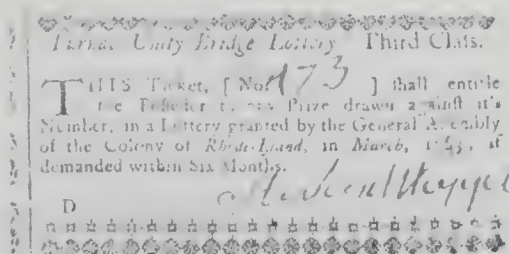 Unity Bridge Lottery Third Class.
THIS Ticket, [ No 173 ] shall entitle
the Prize drawn against it's
Number, in a Lottery granted by the General
of the Colony of Rhode-Island, in March, if
demanded within Six Months.
D